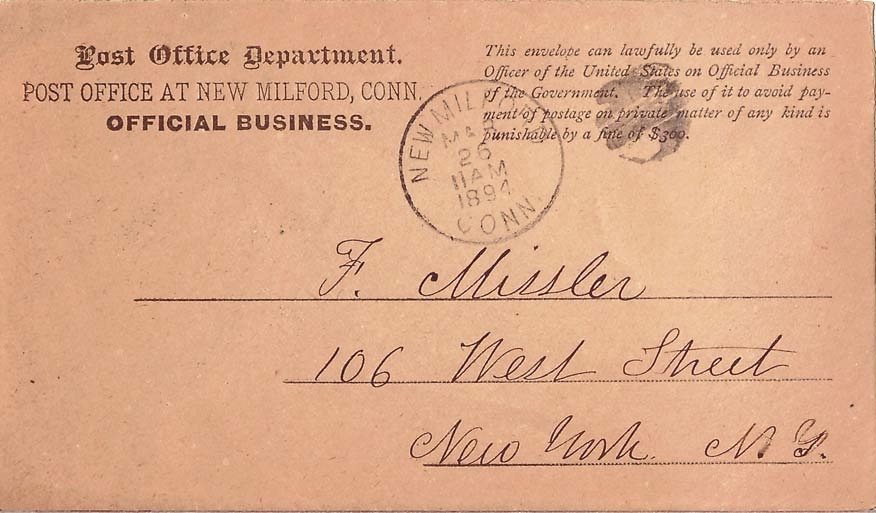 Post Office Department.
POST OFFICE AT NEW MILFORD, CONN.
OFFICIAL BUSINESS.
This envelope can lawfully be used only by an
Officer of the United States on Official Business
of the Government. The use of it to avoid pay-
ment of postage on private matter of any kind is
punishable by a fine of $300.
NEW MILFORD
26
11AM
1894
CONN.
F. Missler
106 West Street
New York. N. Y.